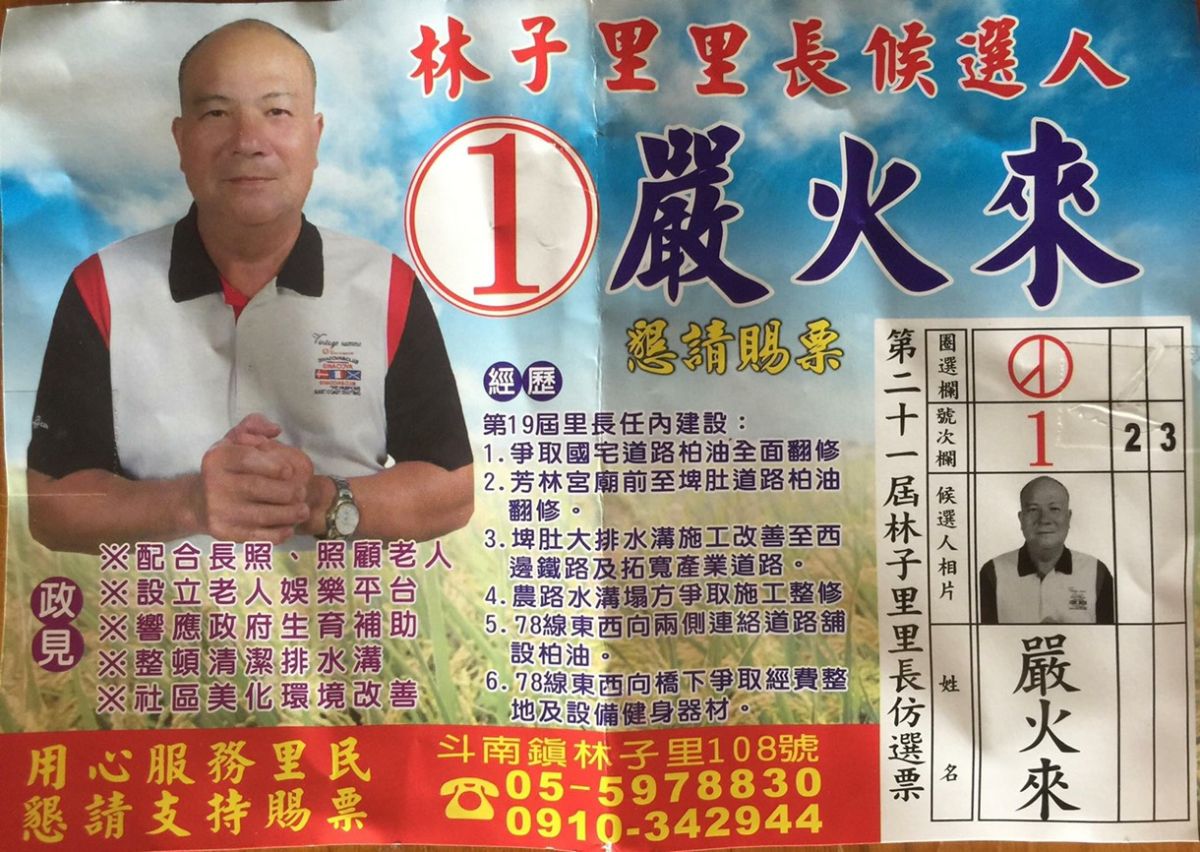 林子里里長候選人
1
嚴火來
懇請賜票
經歷
第19屆里長任內建設：
1.爭取國宅道路柏油全面翻修
2.芳林宮廟前至埤肚道路柏油
翻修。
3.埤肚大排水溝施工改善至西
邊鐵路及拓寬產業道路。
4.農路水溝塌方爭取施工整修
5.78線東西向兩側連絡道路舖
設柏油。
6.78線東西向橋下爭取經費整
地及設備健身器材。
政見
※配合長照、照顧老人
※設立老人娛樂平台
※響應政府生育補助
※整頓清潔排水溝
※社區美化環境改善
用心服務里民
懇請支持賜票
斗南鎮林子里108號
☎05-5978830
0910-342944
第二十一屆林子里里長仿選票
圈選欄
號次欄
1
2
3
候選人相片
姓名
嚴火來